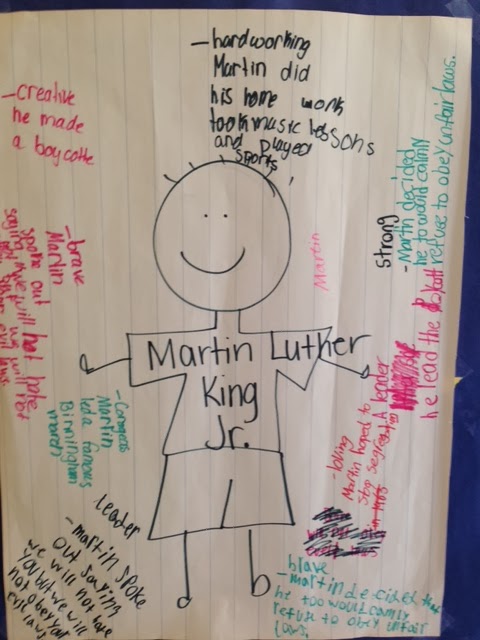 -hardworking
Martin did
his home work
took music lessons
and played
sports
-creative
he made
a boycotte
strong
-Martin decided
he to would calmly
refuse to obey unfair laws.
Martin
-brave
Martin
spoke out
saying we will not hate
Martin Luther
King
Jr.
he lead the
A leader
-loving
Martin hoped to
stop
Martin
led a famous
Birmingham
march
leader
-martin spoke
out saying
we will not hate
you but we will
not obey your
evil laws
brave
-martin decided that
he too would calmly
refuse to obey unfair
laws.